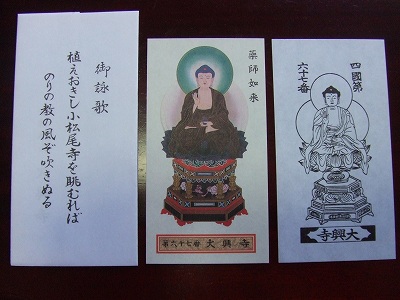 御詠歌
植えおきし小松尾寺を眺むれば
のりの教の風ぞ吹きぬる
薬師如来
第六十七番 大興寺
四國第
六十七番
大興寺